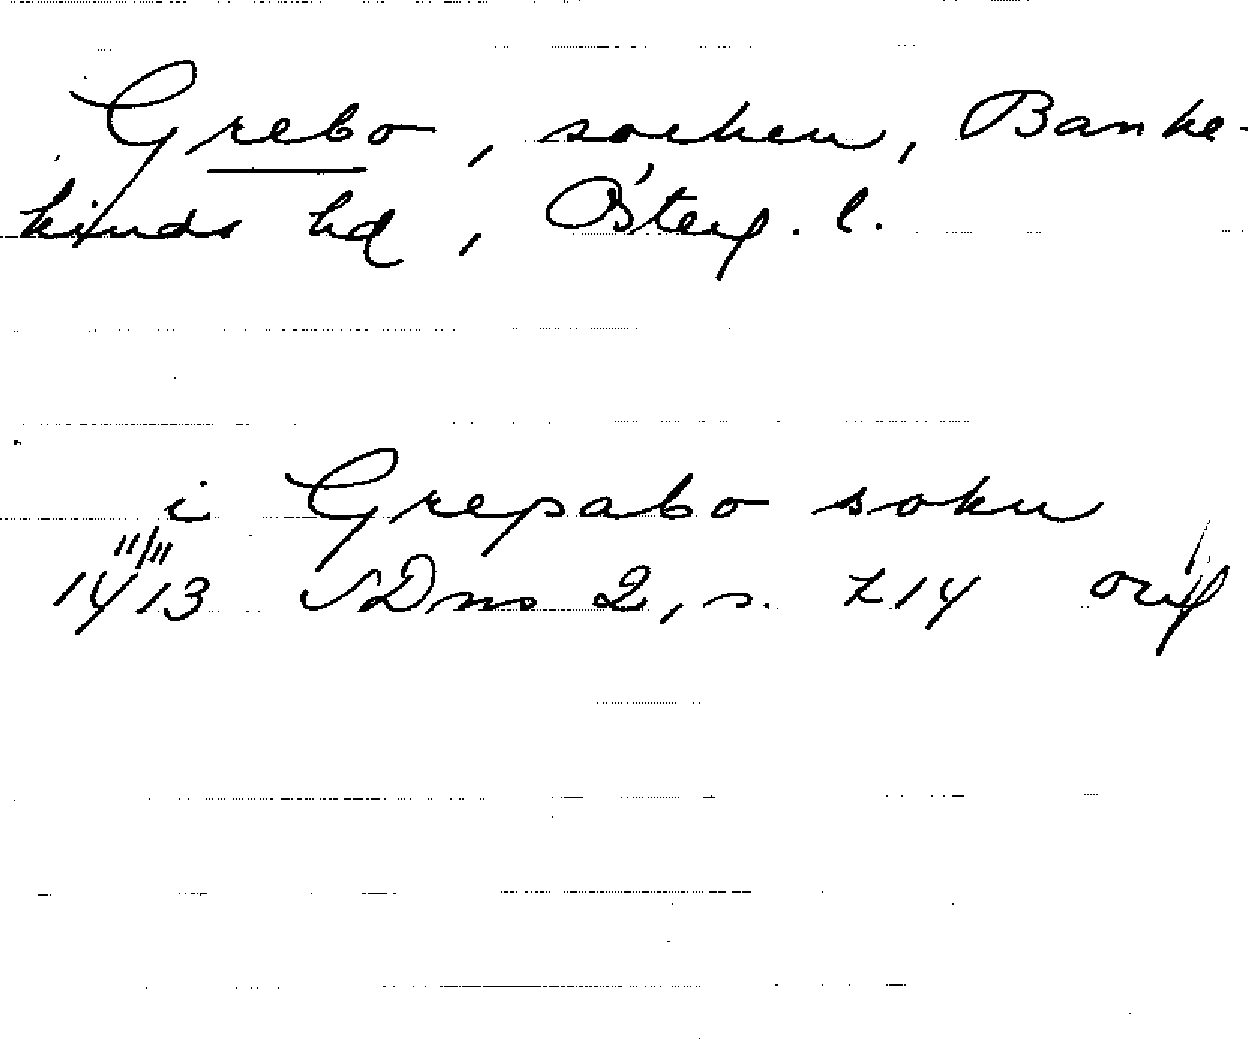 Grebo, socken, Banke-
kinds hd, Österg. l.
i Grepabo sokn
11/11
1413 SDns 2, s. 714 orig